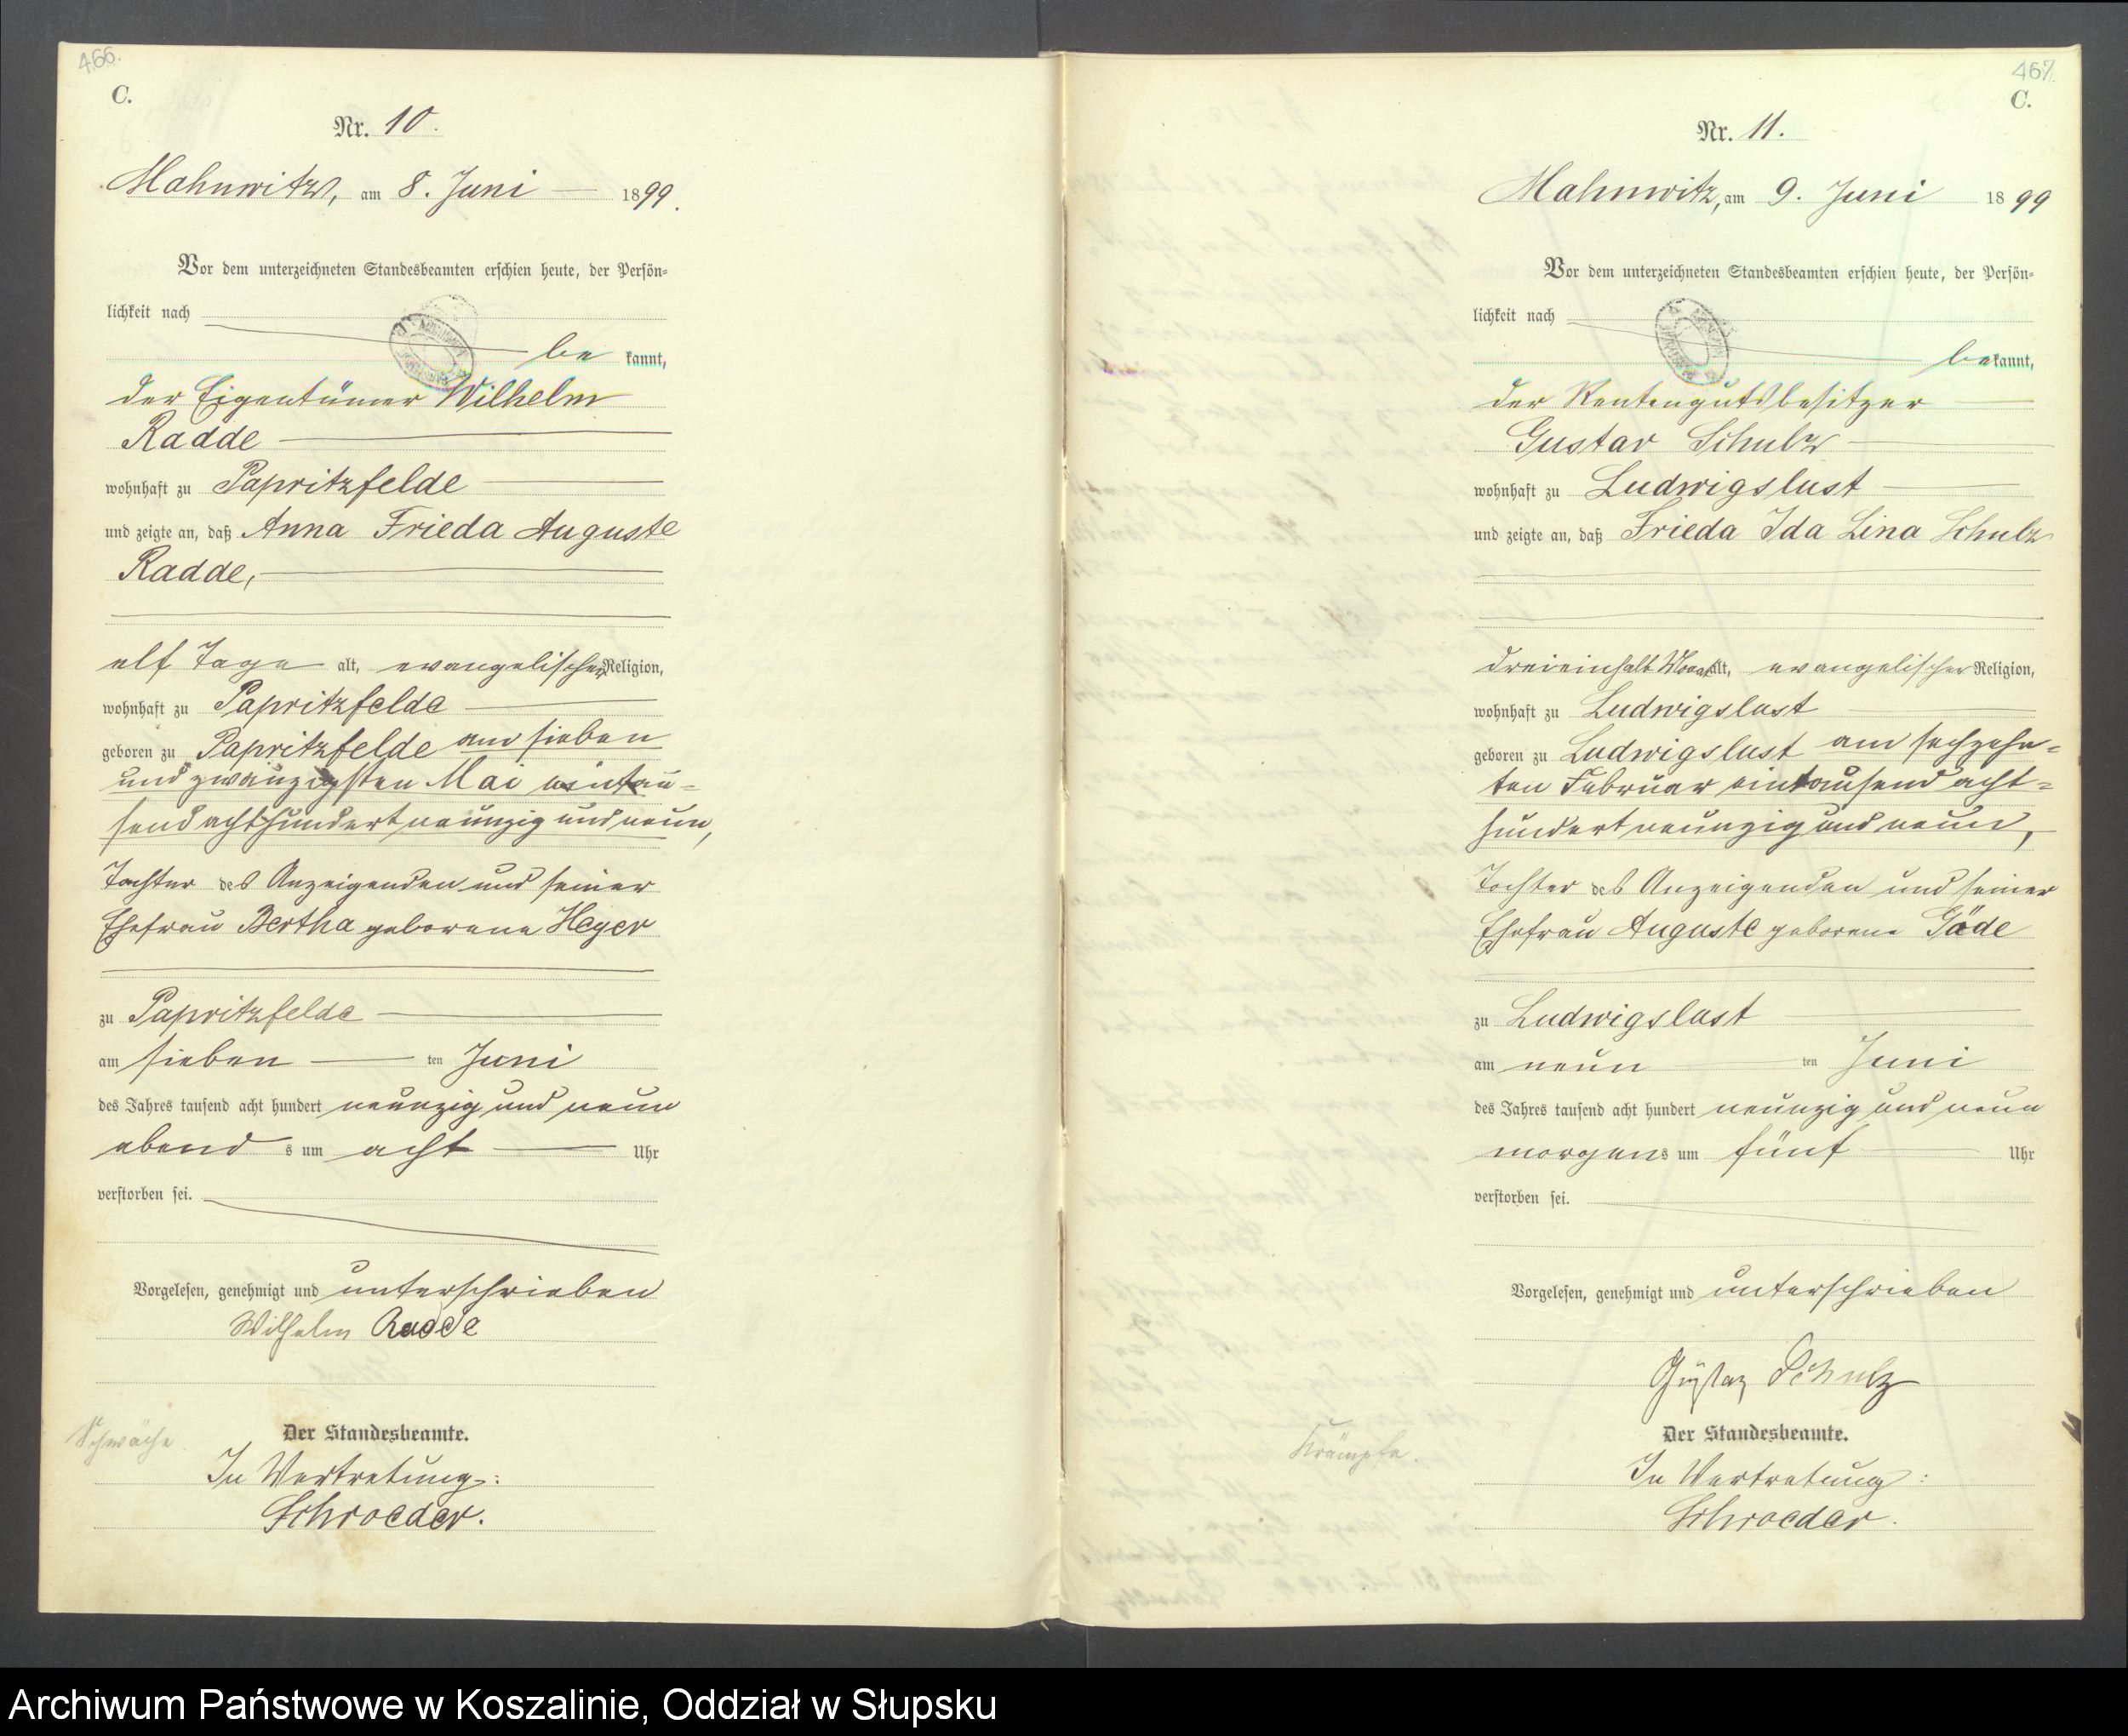 466.
C.
Nr. 10.
Mahnwitz, am 8. Juni 1899.
Vor dem unterzeichneten Standesbeamten erschien heute, der Persön=
lichkeit nach
be kannt,
der Eigentümer Wilhelm
Radde
wohnhaft zu Papritzfelde
und zeigte an, daß Anna Frieda Auguste
Radde,
elf Tage alt, evangelischer Religion,
wohnhaft zu Papritzfelde
geboren zu Papritzfelde am sieben
und zwanzigsten Mai eintau=
send achthundert neunzig und neun,
Tochter des Anzeigenden und seiner
Ehefrau Bertha geborene Heyer
zu Papritzfelde
am sieben ten Juni
des Jahres tausend acht hundert neunzig und neun
abend s um acht Uhr
verstorben sei.
Vorgelesen, genehmigt und unterschrieben
Wilhelm Radde
Schwäche
Der Standesbeamte.
In Vertretung:
Schroeder.
467.
C.
Nr. 11.
Mahnwitz, am 9. Juni 1899
Vor dem unterzeichneten Standesbeamten erschien heute, der Persön=
lichkeit nach
bekannt,
der Rentengutsbesitzer
Gustav Schulz
wohnhaft zu Ludwigslust
und zeigte an, daß Frieda Ida Lina Schulz
dreieinhalb Monat alt, evangelischer Religion,
wohnhaft zu Ludwigslust
geboren zu Ludwigslust am sechzehn=
ten Februar eintausend acht=
hundert neunzig und neun,
Tochter des Anzeigenden und seiner
Ehefrau Auguste geborene Gäde
zu Ludwigslust
am neun ten Juni
des Jahres tausend acht hundert neunzig und neun
morgens um fünf Uhr
verstorben sei.
Vorgelesen, genehmigt und unterschrieben
Gustav Schulz
Krämpfe.
Der Standesbeamte.
In Vertretung:
Schroeder.
Archiwum Państwowe w Koszalinie, Oddział w Słupsku